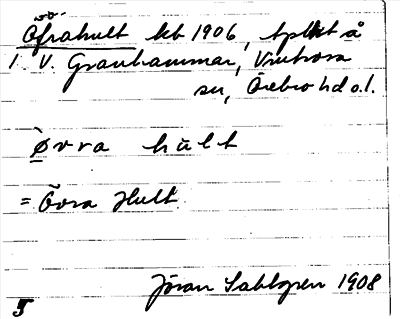 Öfrahult kb 1906, tplkt å
1 V. Granhammar, Vintrosa
sn, Örebro hd o.l.
Øvra hùlt
= Övra Hult
Jöran Sahlgren 1908
5